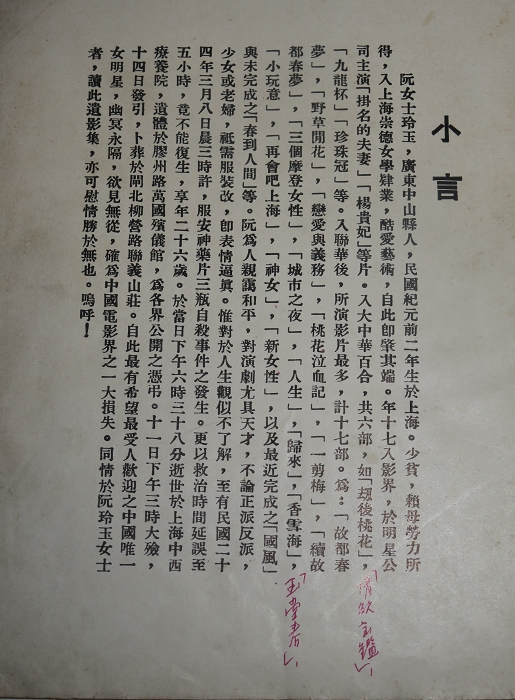 小言
阮女士玲玉，廣東中山縣人，民國紀元前二年生於上海。少貧，賴母勞力所
得，入上海崇德女學肄業，酷愛藝術，自此即肇其端。年十七入影界，於明星公
司主演「掛名的夫妻」「楊貴妃」等片。入大中華百合，共六部，如「刼後桃花」，
「情欲宝鑑」，
「九龍杯」，「珍珠冠」等。入聯華後，所演影片最多，計十七部。爲：「故都春
夢」，「野草閒花」，「戀愛與義務」，「桃花泣血記」，「一剪梅」，「續故
都春夢」，「三個摩登女性」，「城市之夜」，「人生」，「歸來」，「香雪海」，
「玉堂春」，
「小玩意」，「再會吧上海」，「神女」，「新女性」，以及最近完成之「國風」
與未完成之「春到人間」等。阮爲人親藹和平，對演劇尤具天才，不論正派反派，
少女或老婦，祗需服裝改，卽表情逼眞。惟對於人生觀似不了解，至有民國二十
四年三月八日晨三時許，服安神藥片三瓶自殺事件之發生。更以救治時間延誤至
五小時，竟不能復生，享年二十六歲。於當日下午六時三十八分逝世於上海中西
療養院，遺體於膠州路萬國殯儀館，爲各界公開之憑弔。十一日下午三時大殮，
十四日發引，卜葬於閘北柳營路聯義山莊。自此最有希望最受人歡迎之中國唯一
女明星，幽冥永隔，欲見無從，確爲中國電影界之一大損失。同情於阮玲玉女士
者，讀此遺影集，亦可慰情勝於無也。嗚呼！